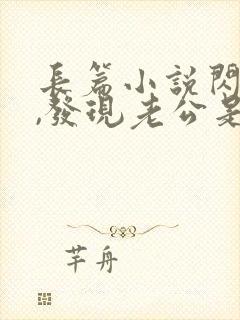 長篇小說閃
,發現老公是
芊舟